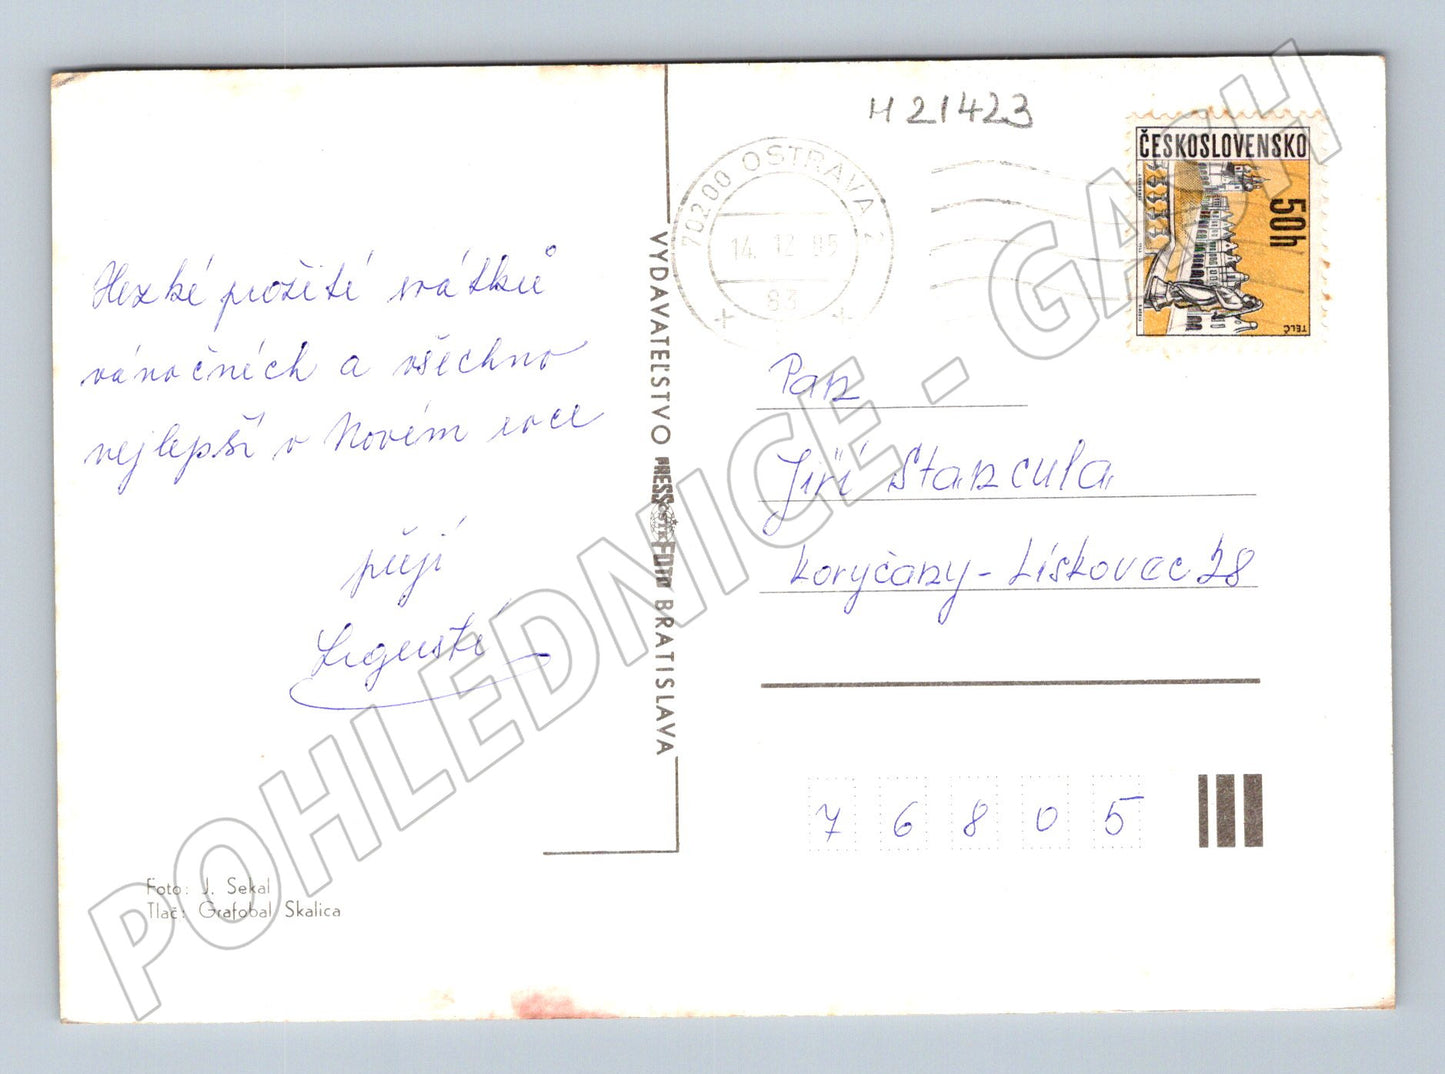 Hezké prožití svátků
vánočních a všechno
nejlepší v Novém roce
přejí
Foto: J. Sekal
Tlač: Grafobal Skalica
VYDAVATEĽSTVO PRESSFOTO BRATISLAVA
H 21423
70200 OSTRAVA 2
14. 12. 85
83
ČESKOSLOVENSKO
50h
TELČ
Pan
Jiří Stancula
Koryčany - Lískovec 28
7 6 8 0 5
POHLEDNICE - GASH